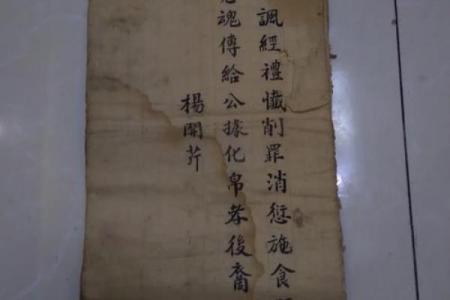 諷經禮懺削罪消愆施食
魂傳給公據化帛孝後裔
楊開芹